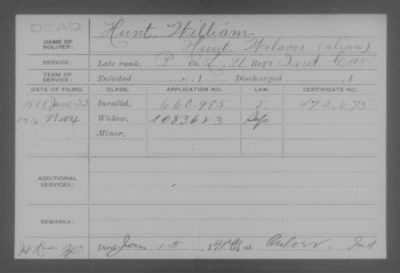 DEAD
NAME OF SOLDIER: Hunt, William
Hunt, Wilson (alias)
SERVICE: Late rank, P Co. L, 11 Reg't Ind Cav.
TERM OF SERVICE: Enlisted , 1 Discharged , 1
DATE OF FILING. CLASS. APPLICATION NO. LAW. CERTIFICATE NO.
1888 Invalid, 472,675
Nov Widow, 1083623
Minor,
ADDITIONAL SERVICES:
REMARKS:
Died Jan 15, at Culver, Ind